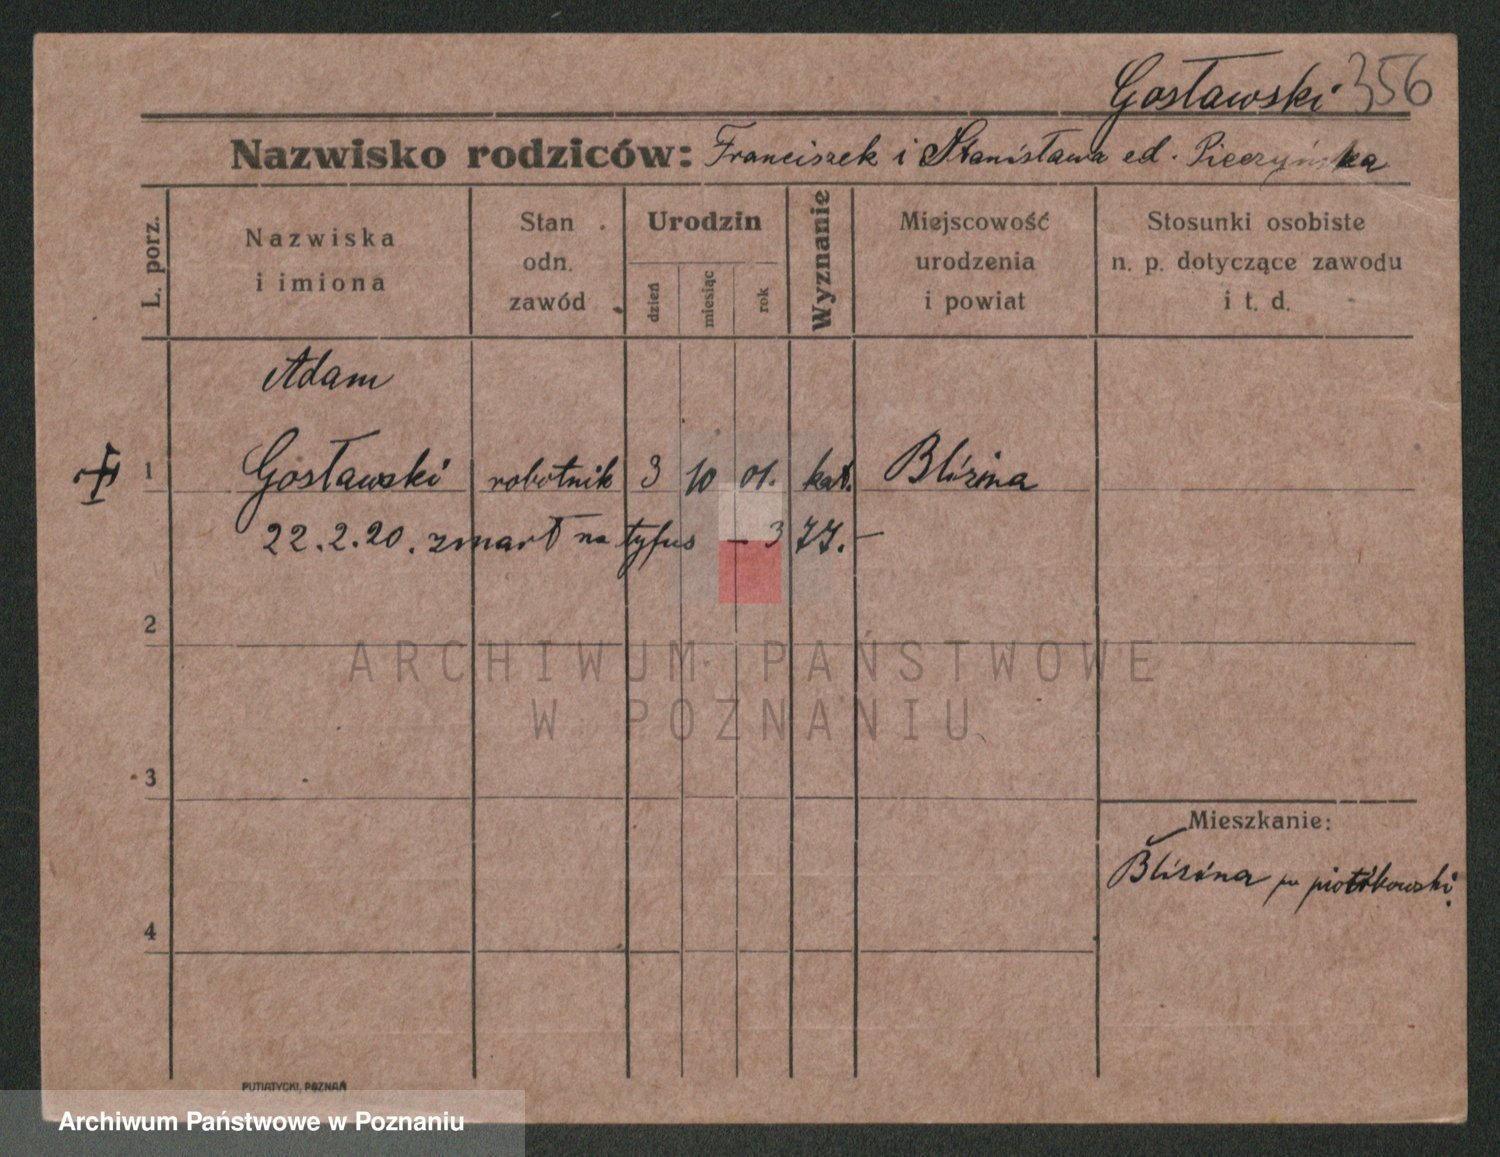 Gosławski 356
Nazwisko rodziców: Franciszek i Stanisława ed. Pieczyńska
L. porz.
Nazwiska
i imiona
Stan
odn.
zawód
Urodzin
dzień
miesiąc
rok
Wyznanie
Miejscowość
urodzenia
i powiat
Stosunki osobiste
n. p. dotyczące zawodu
i t. d.
Adam
1 Gosławski robotnik 3 10 01. kat. Bliźina
22.2.20. zmarł na tyfus — 377.—
2
ARCHIWUM PAŃSTWOWE
W POZNANIU
3
Mieszkanie:
Bliźina pw piotrkowski.
4
PUTIATYCKI, POZNAŃ
Archiwum Państwowe w Poznaniu